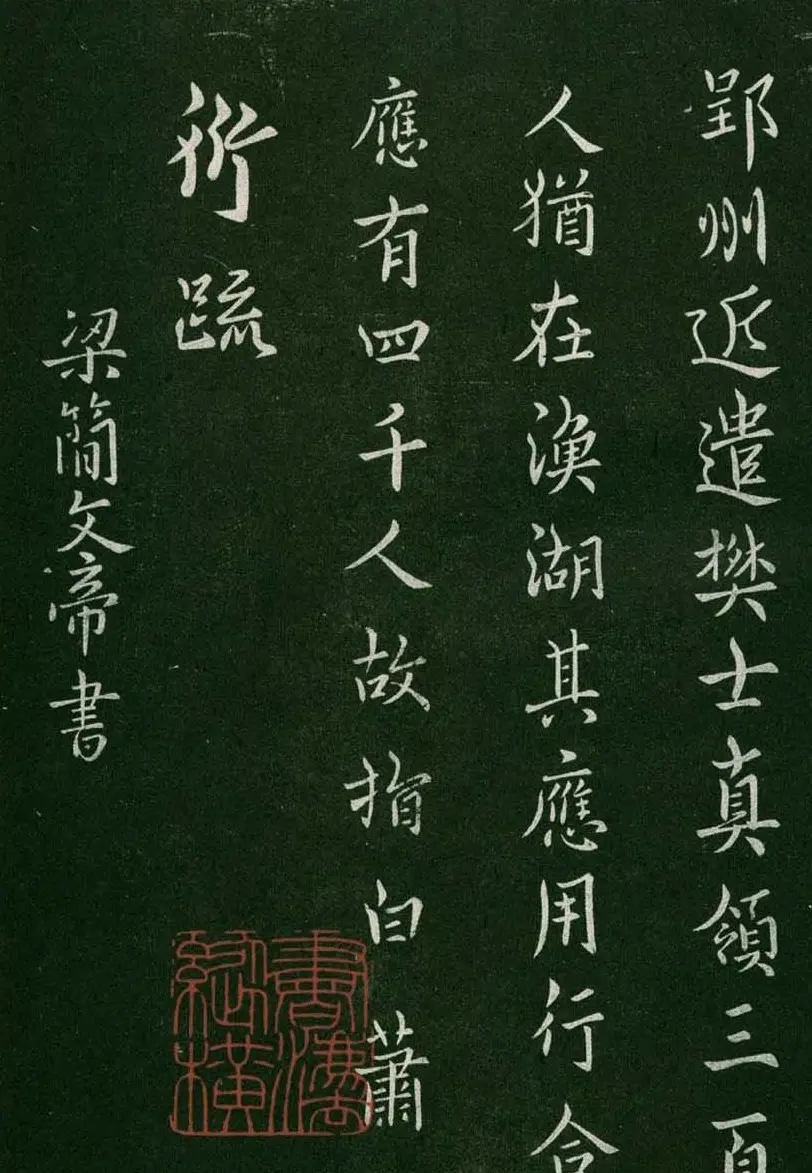 郢州近遣樊士真領三百
人猶在漁湖其應用行合
應有四千人故指白蕭
衍疏
梁簡文帝書
書法
縱橫